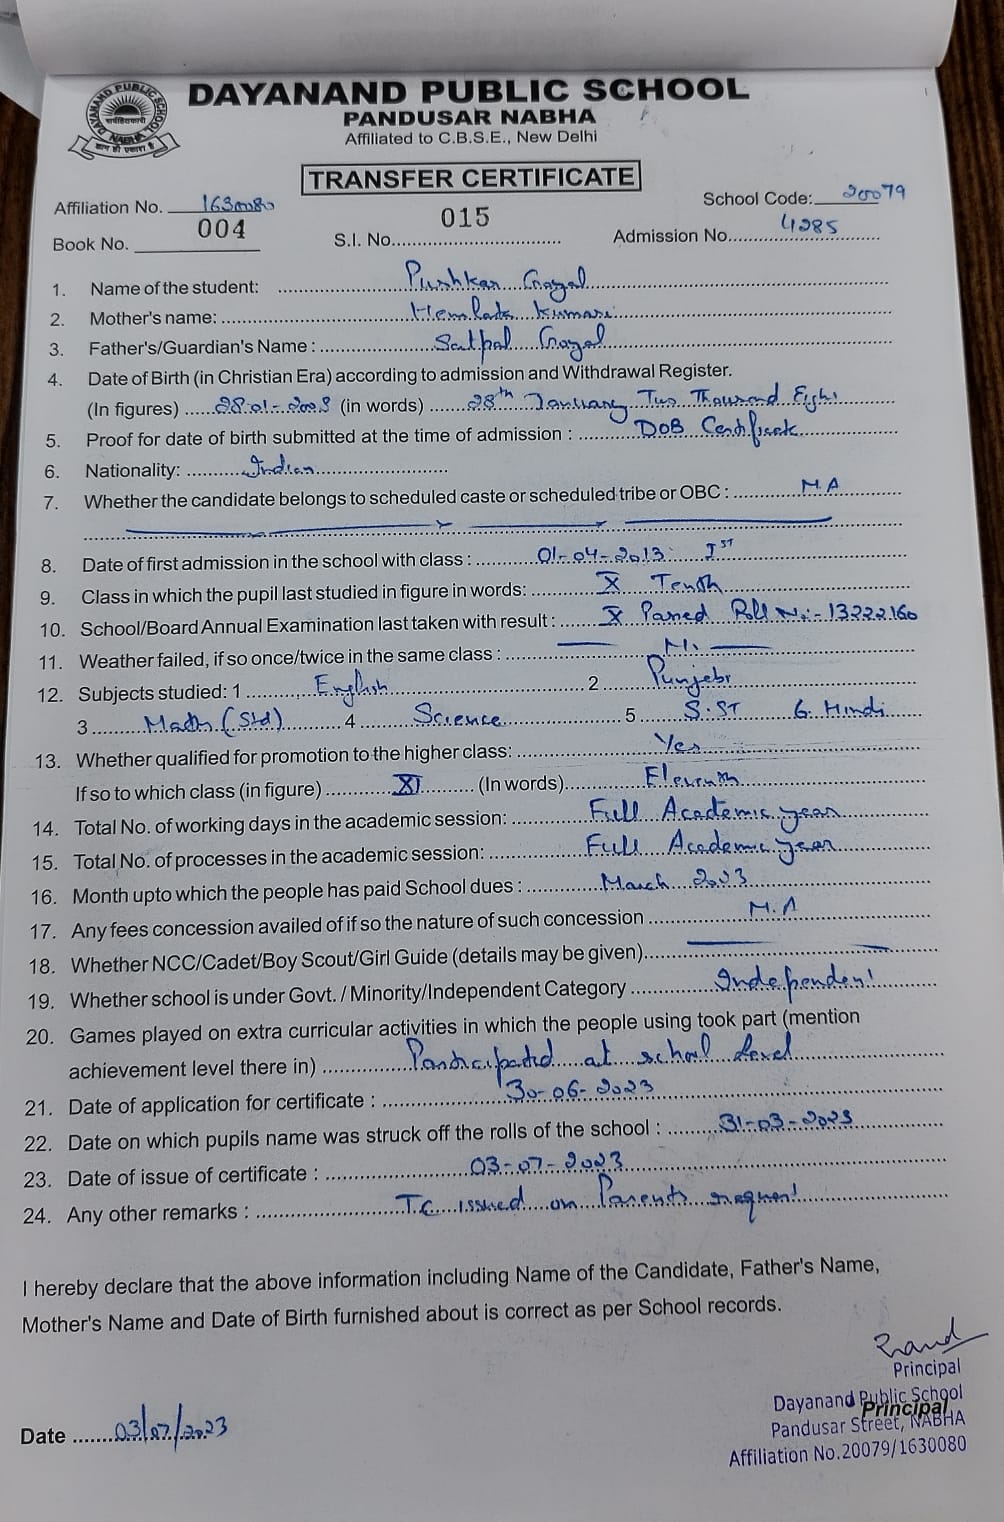 DAYANAND PUBLIC SCHOOL
DAYANAND PUBLIC SCHOOL
NABHA
PANDUSAR NABHA
Affiliated to C.B.S.E., New Delhi
TRANSFER CERTIFICATE
Affiliation No. 1630080 School Code: 20079
Book No. 004 S.I. No. 015 Admission No. 4285
1. Name of the student: Pushkar Goyal
2. Mother's name: Hemlata Kumari
3. Father's/Guardian's Name : Satpal Goyal
4. Date of Birth (in Christian Era) according to admission and Withdrawal Register.
(In figures) 28-01-2008 (in words) 28th January Two Thousand Eight
5. Proof for date of birth submitted at the time of admission : DOB Certificate
6. Nationality: Indian
7. Whether the candidate belongs to scheduled caste or scheduled tribe or OBC : N.A
8. Date of first admission in the school with class : 01-04-2013 Ist
9. Class in which the pupil last studied in figure in words: X Tenth
10. School/Board Annual Examination last taken with result : X Passed Roll No:- 13222160
11. Weather failed, if so once/twice in the same class :
12. Subjects studied: 1 English 2 Punjabi
3 Maths (Std) 4 Science 5 S.ST 6. Hindi
13. Whether qualified for promotion to the higher class: Yes
If so to which class (in figure) XI (In words) Eleventh
14. Total No. of working days in the academic session: Full Academic year
15. Total No. of processes in the academic session: Full Academic year
16. Month upto which the people has paid School dues : March 2023
17. Any fees concession availed of if so the nature of such concession N.A
18. Whether NCC/Cadet/Boy Scout/Girl Guide (details may be given)
19. Whether school is under Govt. / Minority/Independent Category Independent
20. Games played on extra curricular activities in which the people using took part (mention
achievement level there in) Participated at school level
21. Date of application for certificate : 30-06-2023
22. Date on which pupils name was struck off the rolls of the school : 31-03-2023
23. Date of issue of certificate : 03-07-2023
24. Any other remarks : T.C issued on Parents request
I hereby declare that the above information including Name of the Candidate, Father's Name,
Mother's Name and Date of Birth furnished about is correct as per School records.
Principal
Dayanand Public School
Principal
Pandusar Street, NABHA
Affiliation No.20079/1630080
Date 03/07/2023